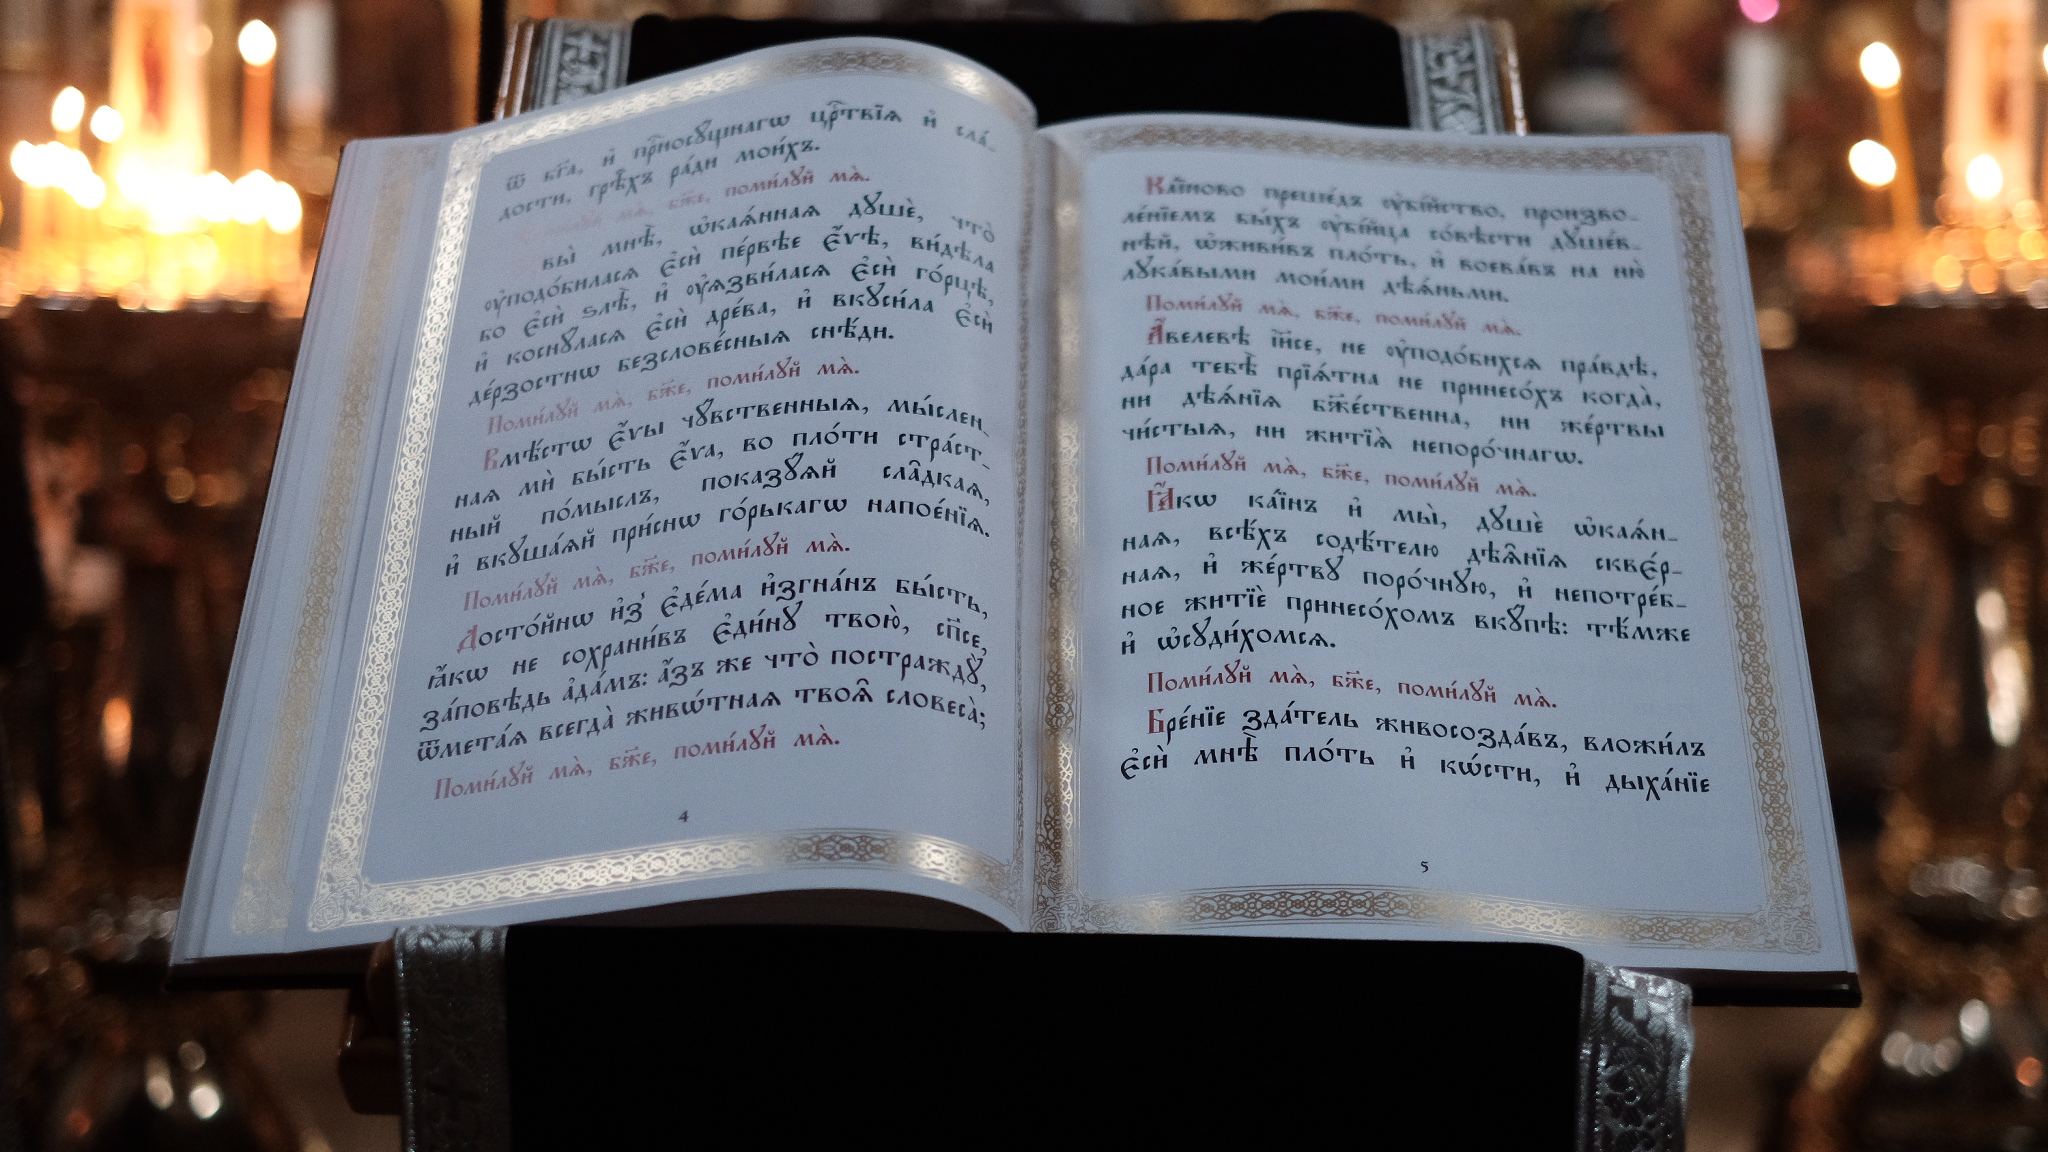 ѿ бг҃а, и҆ прⷭ҇носꙋ́щнагѡ црⷭ҇твїѧ и҆ сла́-
дости, грѣ̑хъ ра́ди мои́хъ.
мѧ̀, бж҃е, поми́лꙋй мѧ̀.
вы̀ мнѣ̀, ѡ҆каѧ́ннаѧ дꙋшѐ, что̀
ᲂу҆подо́биласѧ є҆сѝ пе́рвѣе є҆́ѵѣ, ви́дѣла
бо є҆сѝ ѕлѣ̀, и҆ ᲂу҆ѧзви́ласѧ є҆сѝ го́рцѣ,
и҆ коснꙋ́ласѧ є҆сѝ дре́ва, и҆ вкꙋси́ла є҆сѝ
де́рзостнѡ безслове́сныѧ снѣ́ди.
Поми́лꙋй мѧ̀, бж҃е, поми́лꙋй мѧ̀.
Вмѣ́стѡ є҆́ѵы чꙋ́вственныѧ, мы́слен-
наѧ мѝ бы́сть є҆́ѵа, во пло́ти стра́ст-
ный по́мыслъ, показꙋ́ѧй сла̑дкаѧ,
и҆ вкꙋша́ѧй при́снѡ го́рькагѡ напое́нїѧ.
Поми́лꙋй мѧ̀, бж҃е, поми́лꙋй мѧ̀.
Досто́йнѡ и҆з̾ є҆де́ма и҆згна́нъ бы́сть,
ꙗ҆́кѡ не сохрани́въ є҆ди́нꙋ твою̀, сп҃се,
за́повѣдь а҆да́мъ: а҆́зъ же что̀ постраждꙋ̀,
ѿмета́ѧ всегда̀ живѡ́тнаѧ твоѧ̑ словеса̀;
Поми́лꙋй мѧ̀, бж҃е, поми́лꙋй мѧ̀.
4
Ка́їново преше́дъ ᲂу҆бі́йство, произво-
ле́нїемъ бы́хъ ᲂу҆бі́йца со́вѣсти дꙋше́в-
нѣй, ѡ҆живи́въ пло́ть, и҆ воева́въ на ню̀
лꙋка́выми мои́ми дѣѧ́ньми.
Поми́лꙋй мѧ̀, бж҃е, поми́лꙋй мѧ̀.
А҆́велевѣ і҆и҃се, не ᲂу҆подо́бихсѧ пра́вдѣ,
да́ра тебѣ̀ прїѧ́тна не принесо́хъ когда̀,
ни дѣѧ́нїѧ бж҃е́ственна, ни же́ртвы
чи́стыѧ, ни житїѧ̀ непоро́чнагѡ.
Поми́лꙋй мѧ̀, бж҃е, поми́лꙋй мѧ̀.
Ꙗ҆́кѡ ка́їнъ и҆ мы̀, дꙋшѐ ѡ҆каѧ́н-
наѧ, всѣ́хъ содѣ́телю дѣѧ̑нїѧ скве́р-
наѧ, и҆ же́ртвꙋ поро́чнꙋю, и҆ непотре́б-
ное житїѐ принесо́хомъ вкꙋ́пѣ: тѣ́мже
и҆ ѡ҆сꙋди́хомсѧ.
Поми́лꙋй мѧ̀, бж҃е, поми́лꙋй мѧ̀.
Бре́нїе зда́тель живосозда́въ, вложи́лъ
є҆сѝ мнѣ̀ пло́ть и҆ кѡ́сти, и҆ дыха́нїе
5